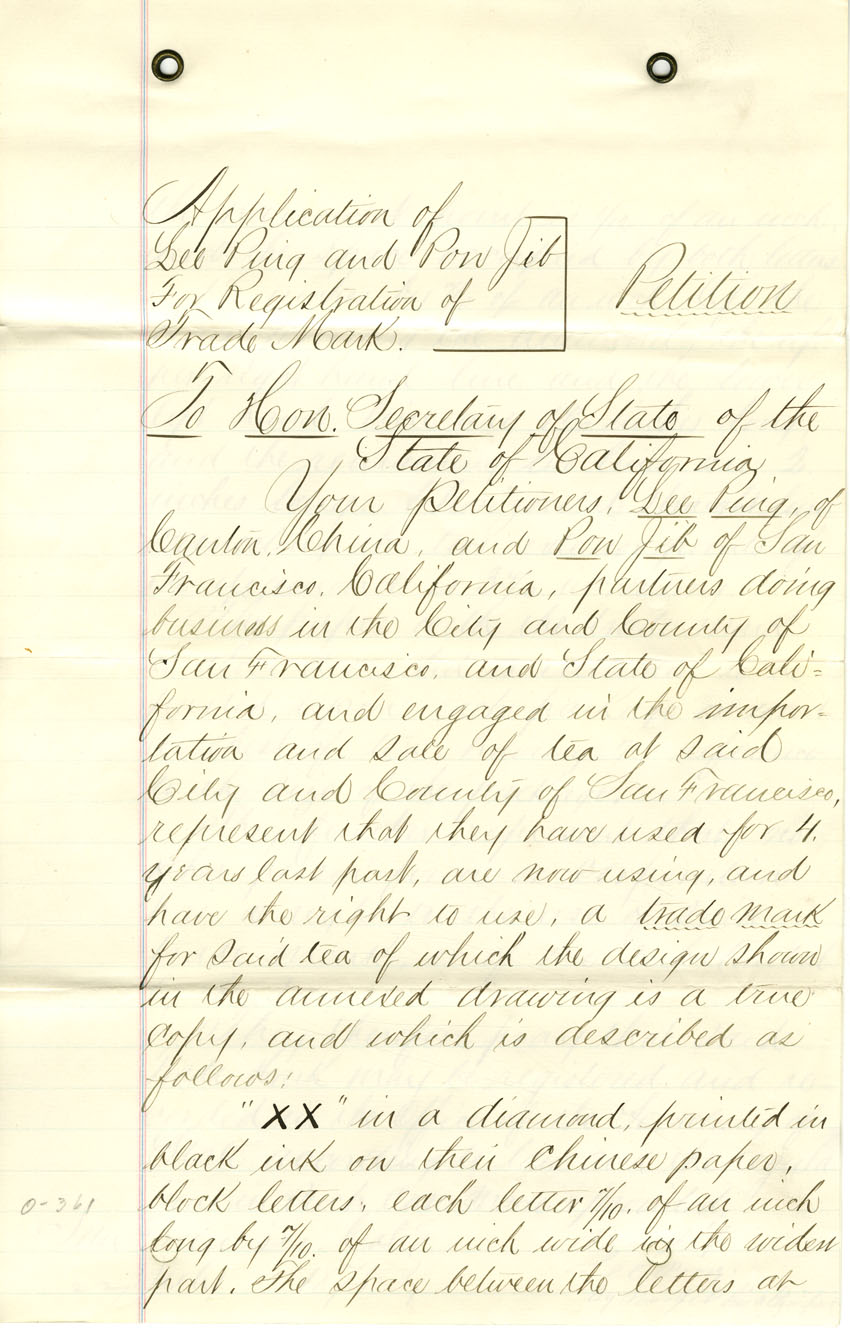 Application of
Lee Ping and Pon Jib
For Registration of
Trade Mark.
Petition
To Hon. Secretary of State of the
State of California
Your petitioners, Lee Ping, of
Canton, China, and Pon Jib of San
Francisco, California, partners doing
business in the City and County of
San Francisco, and State of Cali=
fornia, and engaged in the impor=
tation and sale of tea at said
City and County of San Francisco,
represent that they have used for 4.
years last past, are now using, and
have the right to use, a trade mark
for said tea of which the design shown
in the annexed drawing is a true
copy, and which is described as
follows:
"XX" in a diamond, printed in
black ink on thin Chinese paper,
block letters, each letter 7/10. of an inch
long by 7/10. of an inch wide in the widest
part. The space between the letters at
0-361